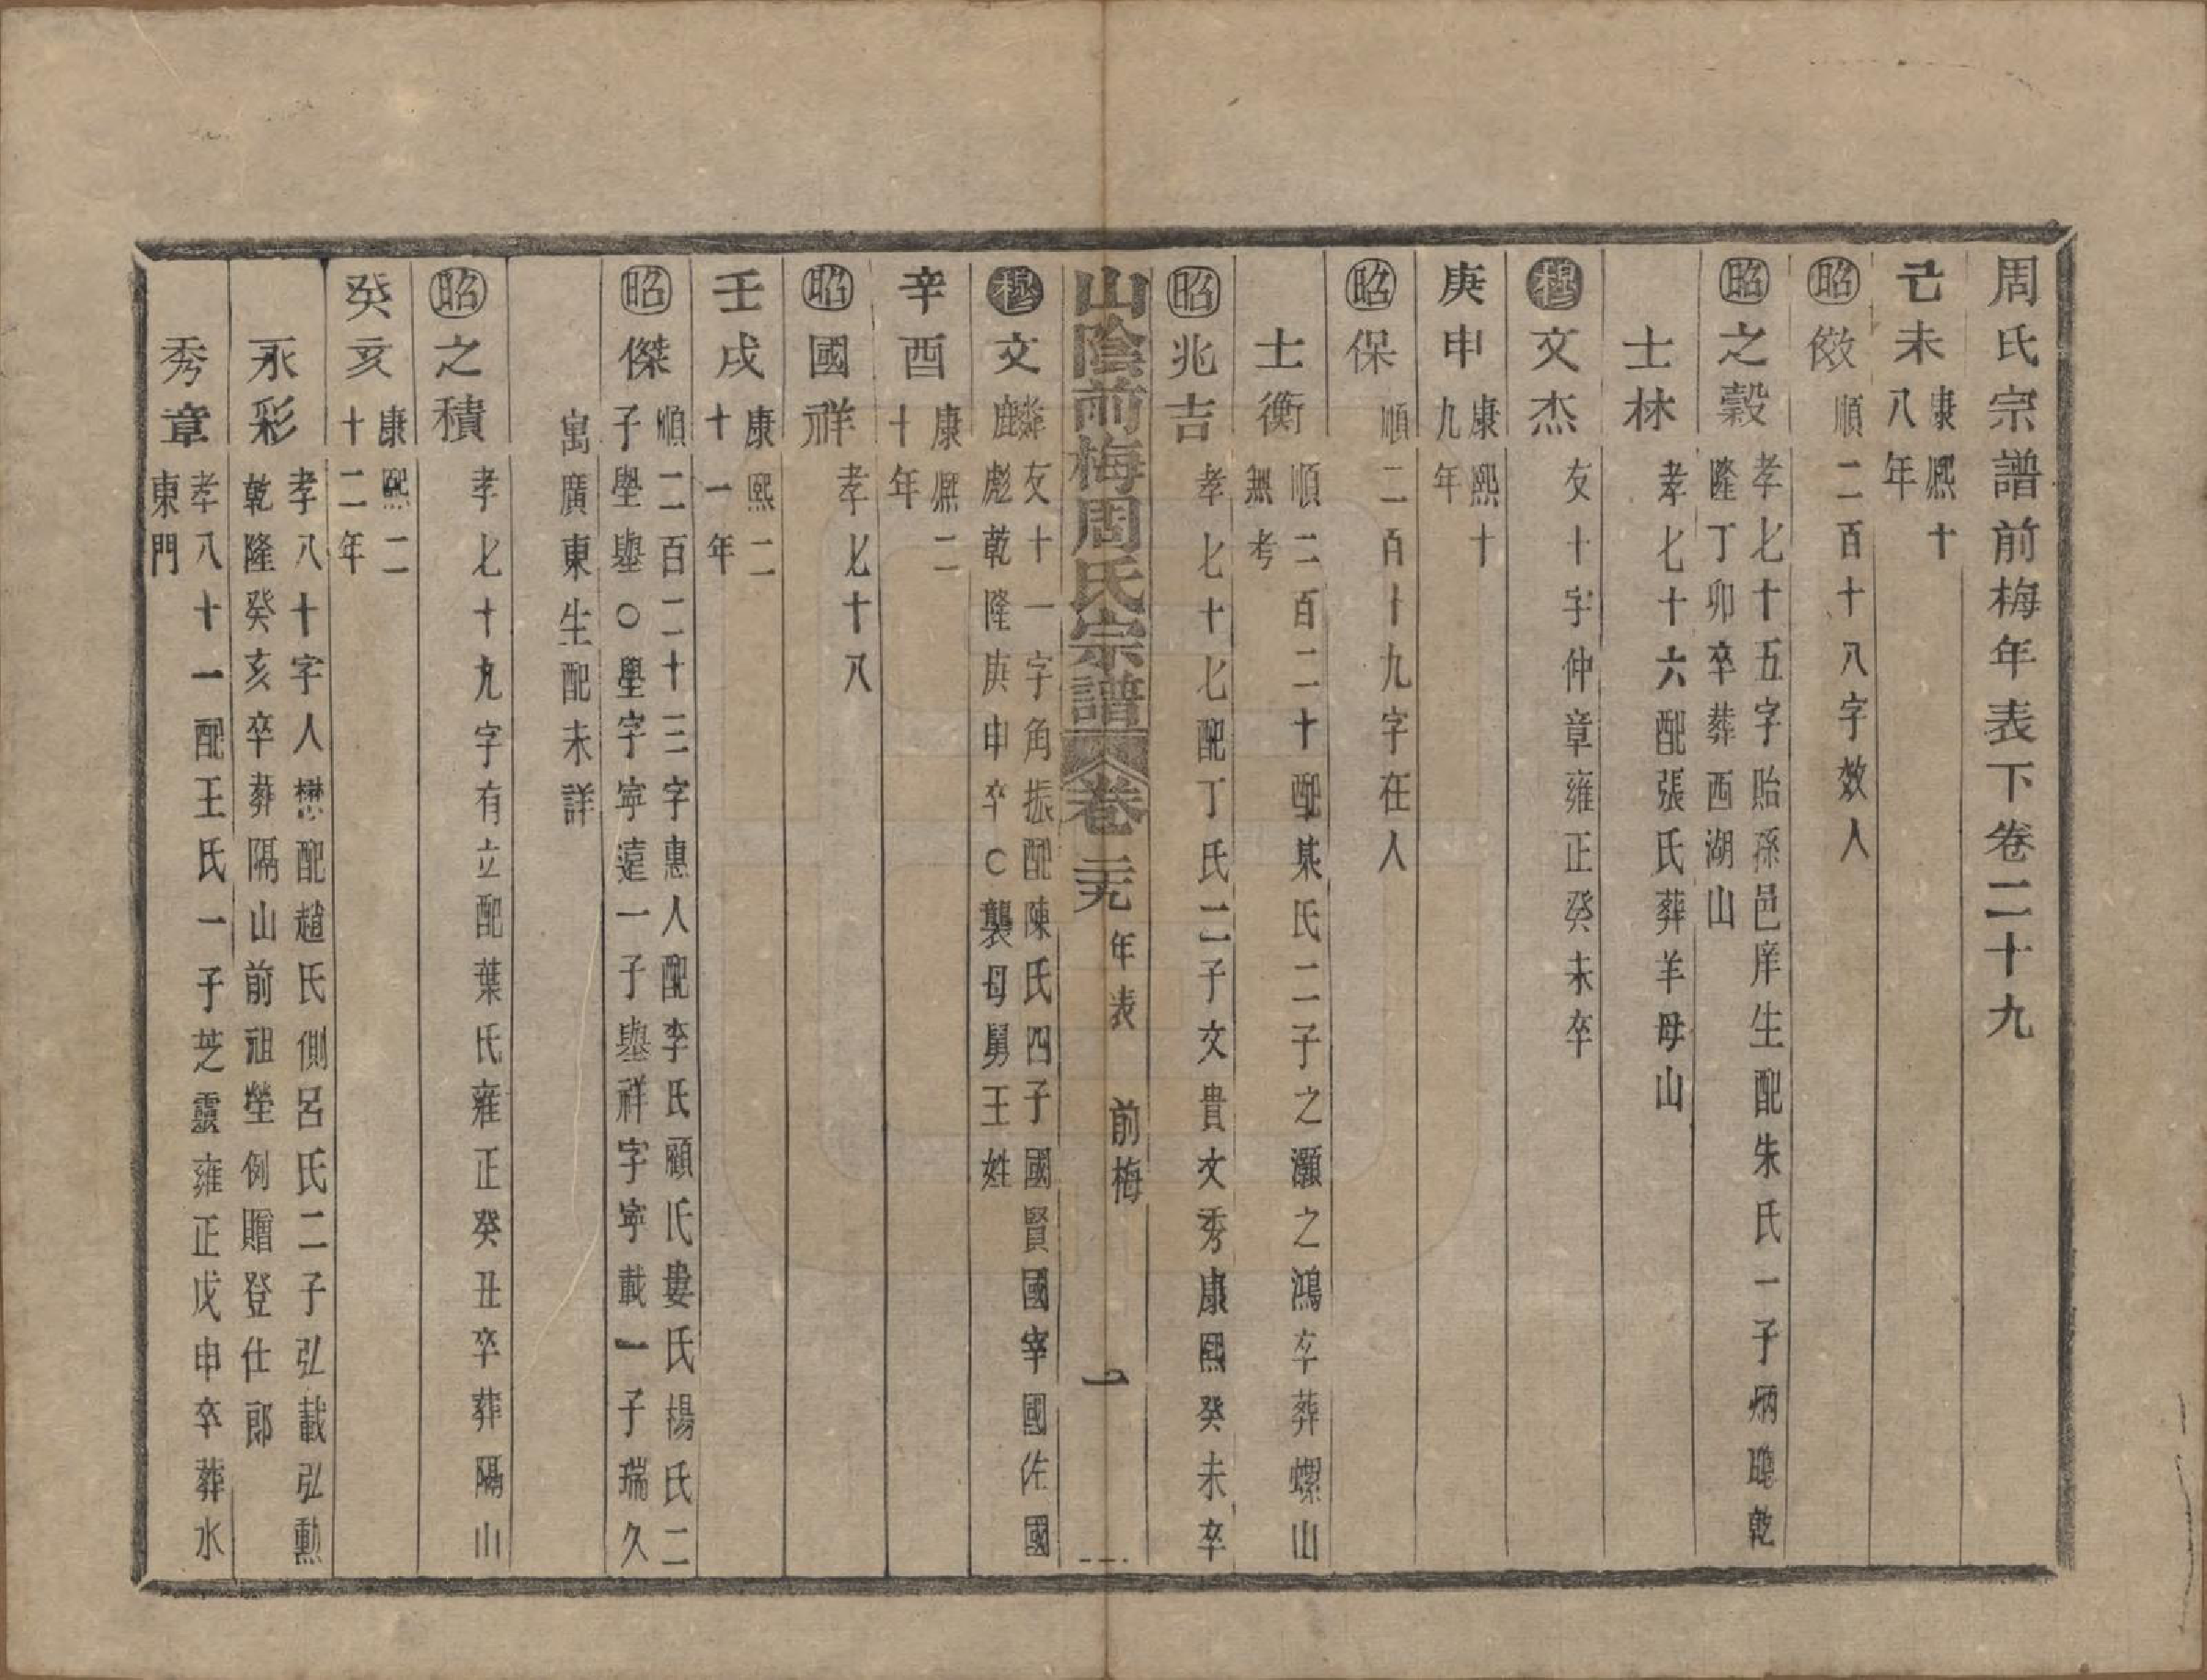 周氏宗譜前梅年表下卷二十九
己未康熙十
八年
昭傚順二百十八字效人
昭之穀孝七十五字貽孫邑庠生配朱氏一子炳聰乾
隆丁卯卒葬西湖山
士林孝七十六配張氏葬羊母山
穆文杰友十字仲章雍正癸未卒
庚申康熙十
九年
昭保順二百十九字在人
士衡順二百二十配某氏二子之灝之鴻卒葬螺山
無考
昭兆吉孝七十七配丁氏二子文貴文秀康熙癸未卒
山陰前梅周氏宗譜卷二十九年表 前梅 一
穆文麟友十一字角振配陳氏四子國賢國宰國佐國
彪乾隆庚申卒○襲母舅王姓
辛酉康熙二
十年
昭國祥孝七十八
壬戌康熙二
十一年
昭傑順二百二十三字惠人配李氏顧氏婁氏楊氏二
子學塏○學字寧遠一子塏祥字寧載一子瑞久
寓廣東生配未詳
昭之積孝七十九字有立配葉氏雍正癸丑卒葬隔山
癸亥康熙二
十二年
永彩孝八十字人懋配趙氏側呂氏二子弘載弘勳
乾隆癸亥卒葬隔山前祖塋例贈登仕郎
秀章孝八十一配王氏一子芝靈雍正戊申卒葬水
東門